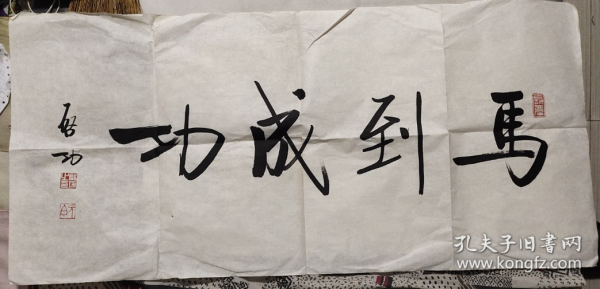 馬到成功
啟功
孔夫子旧書网
www.kongfz.com